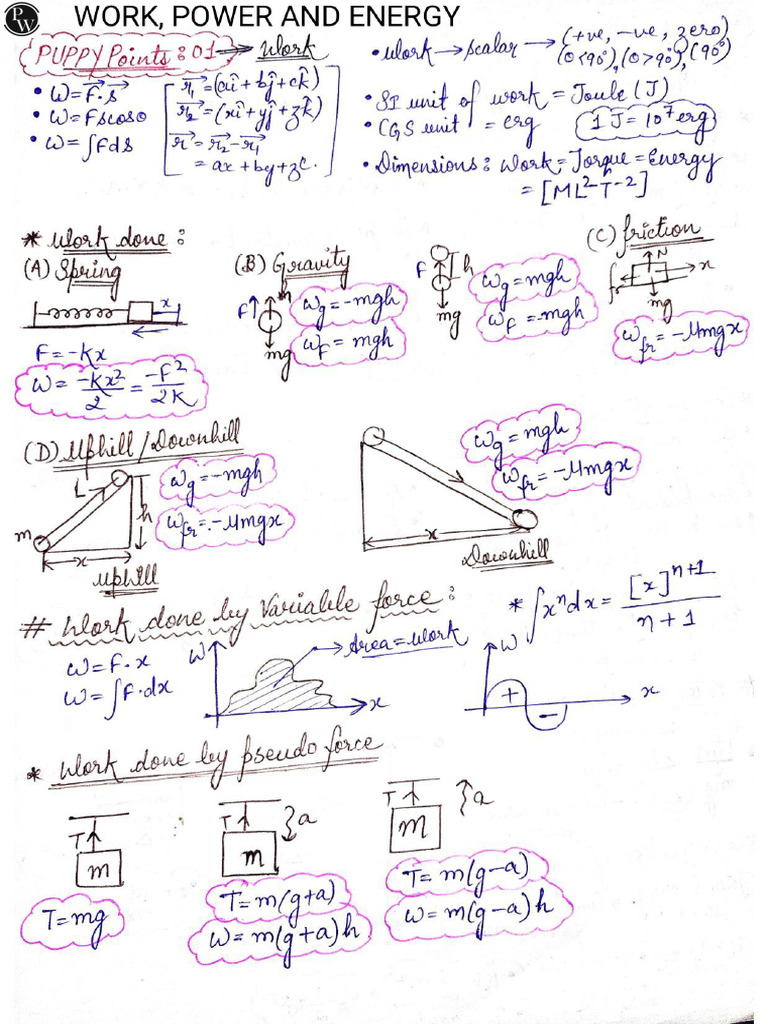 PW
WORK, POWER AND ENERGY
PUPPY Points : 01 → Work
• W = F⃗.s⃗
• W = Fscosθ
• W = ∫Fds
r₁⃗ = (aî + bĵ + ck̂)
r₂⃗ = (xî + yĵ + zk̂)
r⃗ = r₂⃗ - r₁⃗
= ax + by + zc.
• Work → Scalar → (+ve, -ve, zero)
(θ<90°), (θ>90°), (90°)
• SI unit of work = Joule (J)
• CGS unit = erg
1 J = 10⁷ erg
• Dimensions : Work = Torque = Energy
= [ML²T⁻²]
* Work done :
(A) Spring
x
F = -Kx
W = -Kx²/2 = -F²/2K
(B) Gravity
F↑
mg
Wg = -mgh
WF = mgh
F
h
mg
Wg = mgh
WF = -mgh
(C) friction
N
x
fr
mg
Wfr = -μmgx
(D) Uphill / Downhill
L
m
h
x
Uphill
Wg = -mgh
Wfr = -μmgx
x
Downhill
Wg = mgh
Wfr = -μmgx
# Work done by Variable force :
W = F.x
W = ∫F.dx
W
x
Area = work
* ∫xⁿdx = [x]ⁿ⁺¹/n+1
W
+
-
x
* Work done by pseudo force
T
m
T = mg
T
a
m
T = m(g+a)
W = m(g+a)h
T
a
m
T = m(g-a)
W = m(g-a)h